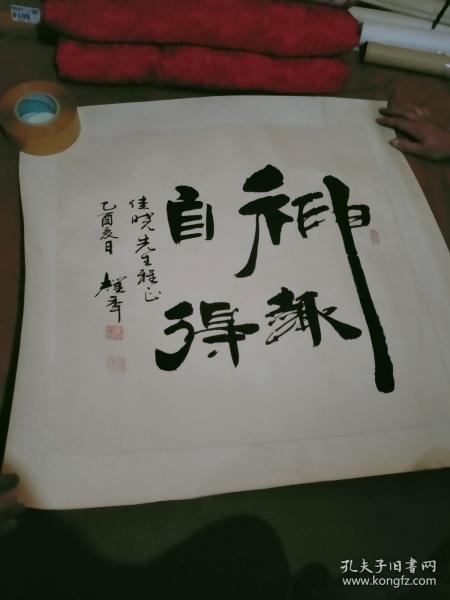 神趣
自得
佳晓先生雅正
乙酉夏日
耀年
8014
孔夫子旧书网
www.kongfz.com